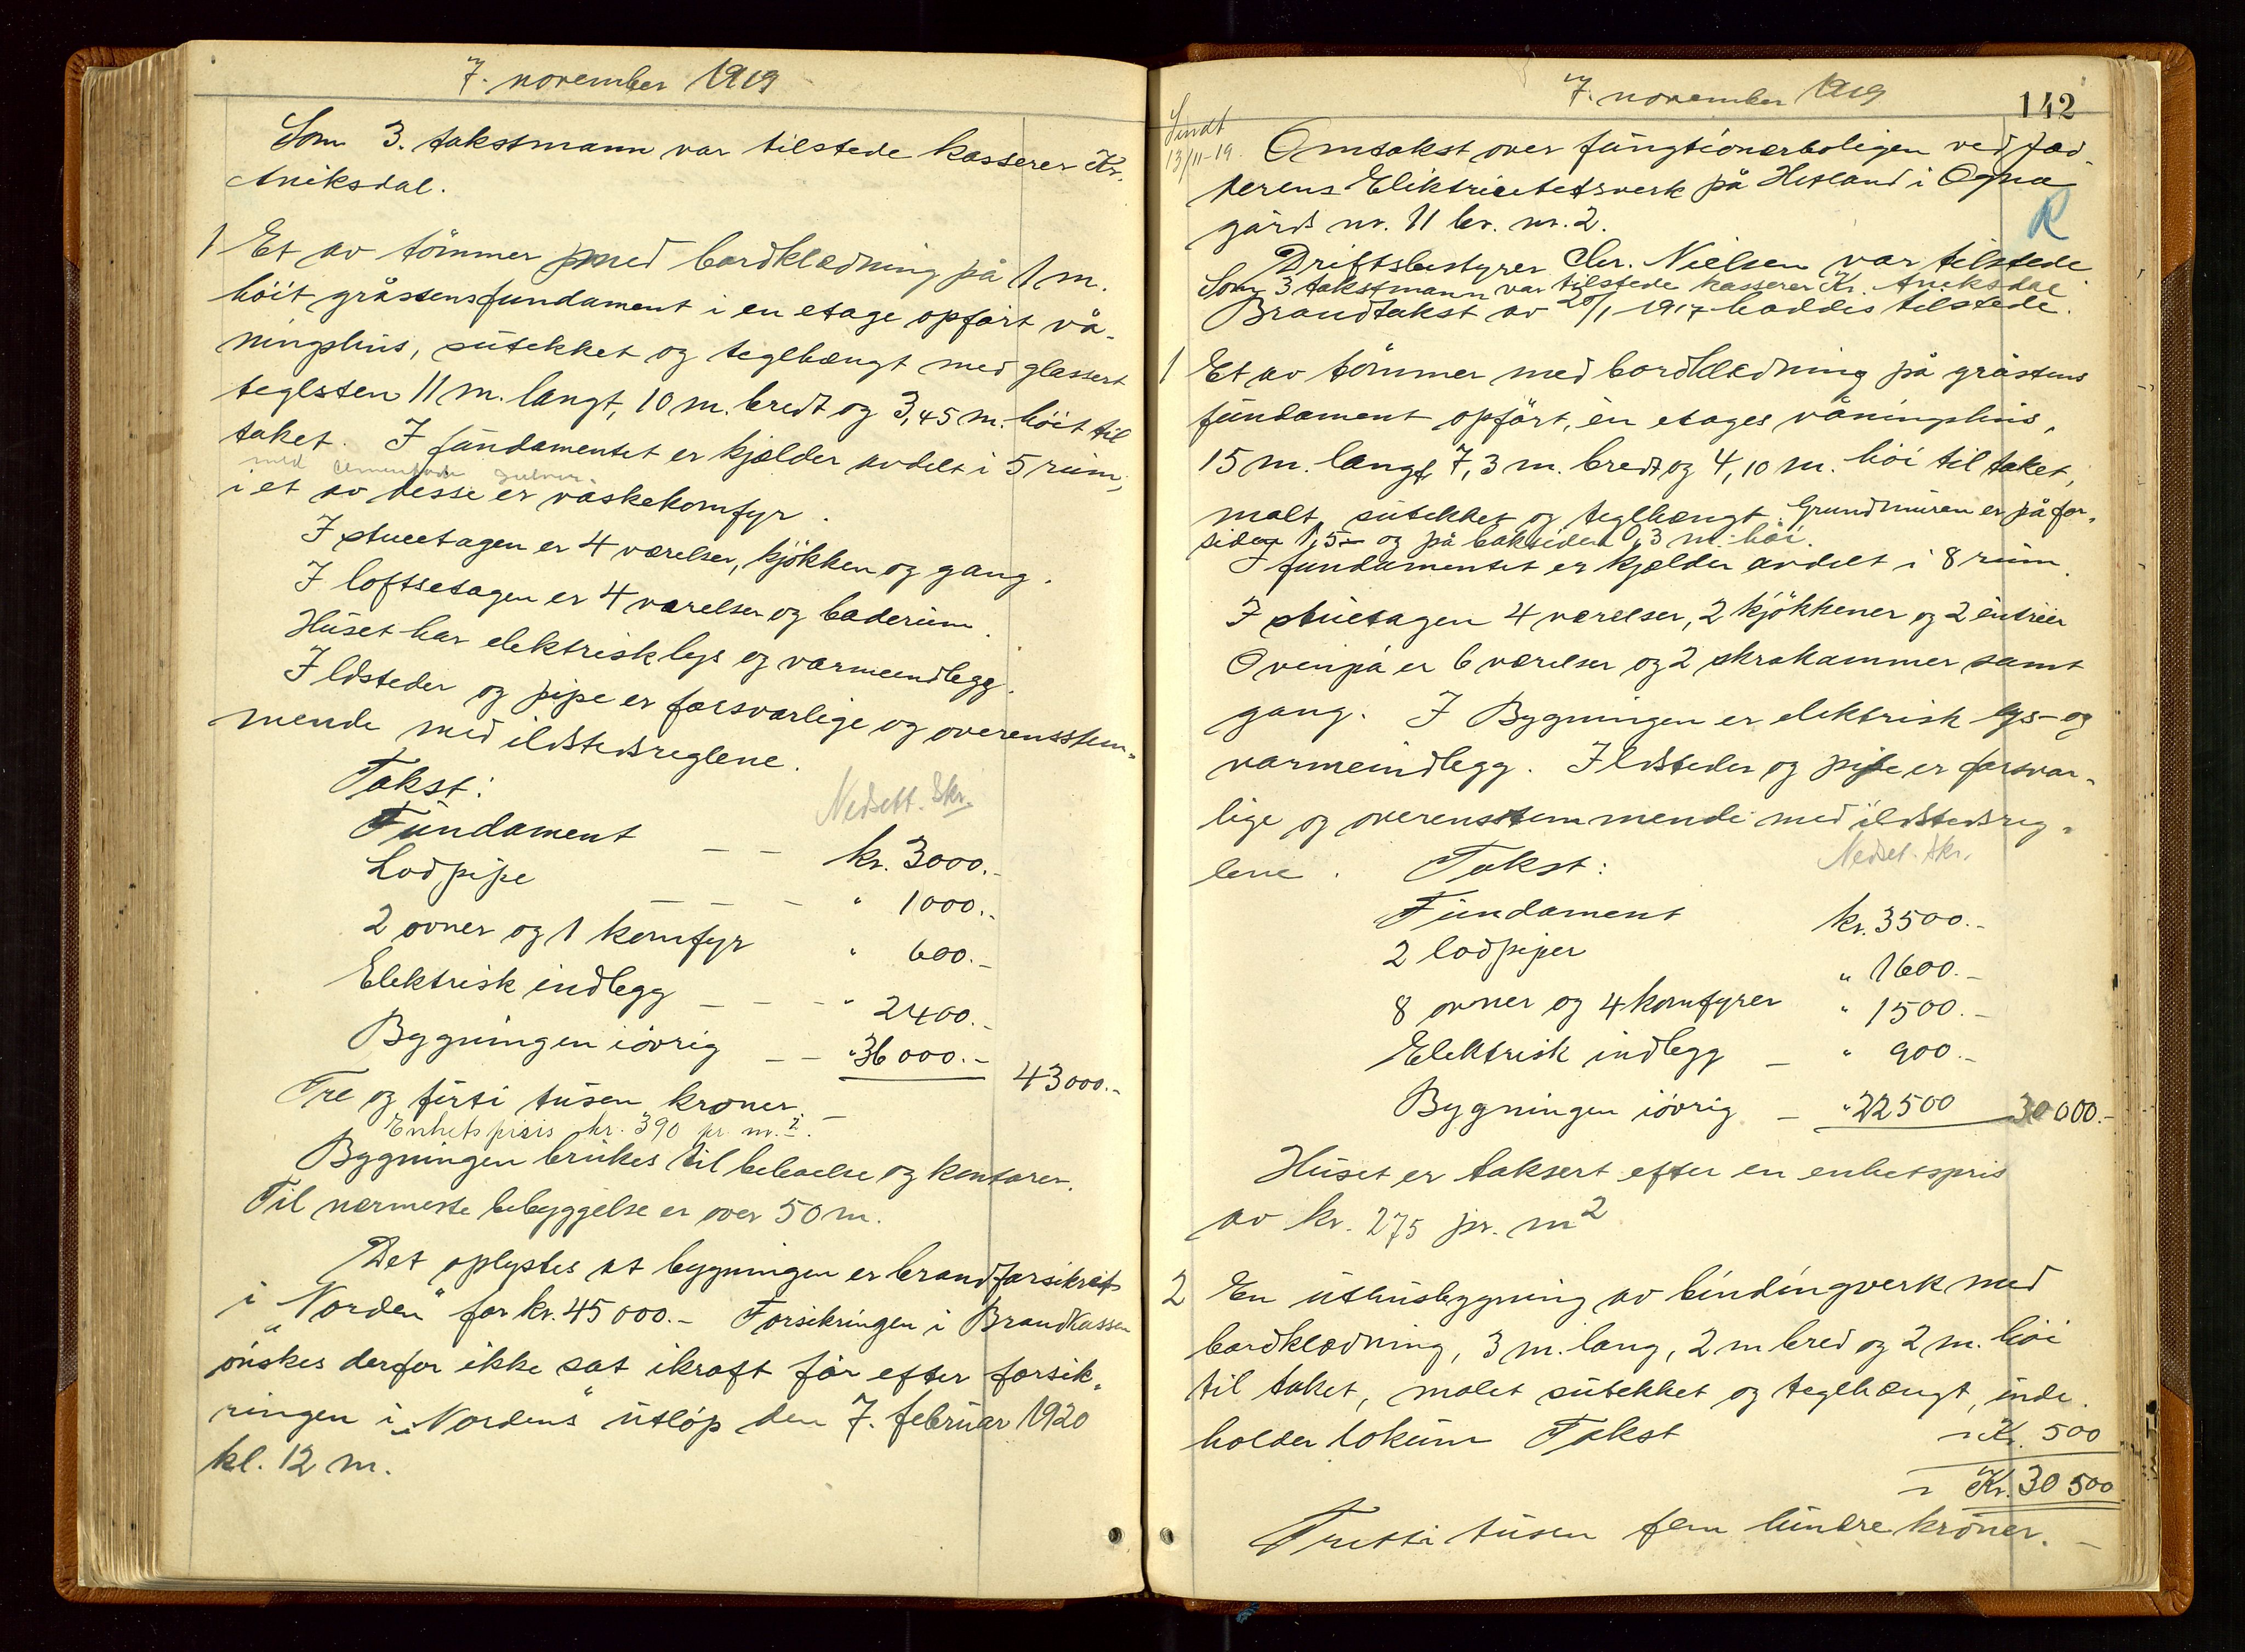 7. november 1919
Som 3. takstmann var tilstede kasserer Kr.
Aniksdal.
1 Et av tömmer med bordklædning på 1 m.
höit gråstensfundament i en etage opfört vå-
ningshus, sutekket og teglhængt med glassert
teglsten 11 m. langt, 10 m. bredt og 3,45 m. höit til
taket. I fundamentet er kjælder avdelt i 5 rum,
med cementerte gulver.
i et av desse er vaskekomfyr.
I stueetagen er 4 værelser, kjökken og gang.
I loftsetagen er 4 værelser og baderum.
Huset har elektrisk lys og varmeindlegg.
Ildsteder og pipe er forsvarlige og overensstem-
mende med ildstedsreglene.
Takst:
Nedsett. Skr.
Fundament - - kr. 3000.-
Lodpipe - - - " 1000.-
2 ovner og 1 komfyr " 600.-
Elektrisk indlegg - - - " 2400.-
Bygningen iövrig - - " 36000.- 43000.-
Tre og förti tusen kroner. -
Enhetspris kr. 390 pr. m.².
Bygningen brukes til beboelse og kontorer.
Til nærmeste bebyggelse er over 50 m.
Det oplystes at bygningen er brandforsikret
i "Norden" for kr. 45000.- Forsikringen i Brandkassen
önskes derfor ikke sat ikraft för efter forsik-
ringen i "Nordens" utlöp den 7. februar 1920
kl. 12 m.
7. november 1919
142
Sendt
13/11-19.
Omtakst over fungtionærboligen ved Jæd-
derens Elektricitetsverk på Hetland i Ogna
gårds nr. 11 br. nr. 2.
R
Driftsbestyrer Chr. Nielsen var tilstede.
Som 3 takstmann var tilstede kasserer Kr. Aniksdal
Brandtakst av 20/1 1917 haddes tilstede.
1 Et av tömmer med bordklædning på gråstens
fundament opfört, en etages våningshus,
15 m. langt 7,3 m. bredt og 4,10 m. höi til taket,
malt, sutekket og teglhængt. Grundmuren er på for-
siden 1,5 og på baksiden 0,3 m. höi.
I fundamentet er kjælder avdelt i 8 rum.
I stuetagen 4 værelser, 2 kjökkener og 2 entreer
Ovenpå er 6 værelser og 2 skrakammer samt
gang. I Bygningen er elektrisk lys- og
varmeindlegg. Ildsteder og pipe er forsvar-
lige og overensstemmende med ildstedsreg-
lene. Takst:
Nedset. Skr.
Fundament kr. 3500.-
2 lodpiper " 1600.-
8 ovner og 4 komfyrer " 1500.-
Elektrisk indlegg - " 900.-
Bygningen iövrig - " 22500 30000.-
Huset er taksert efter en enhetspris
av kr. 275 pr. m²
2 En uthusbygning av bindingverk med
bordklædning, 3 m. lang, 2 m bred og 2 m. höi
til taket, malet sutekket og teglhængt, inde-
holder lokum Takst - Kr. 500
- Kr. 30500
Tretti tusen fem hundre kroner. -